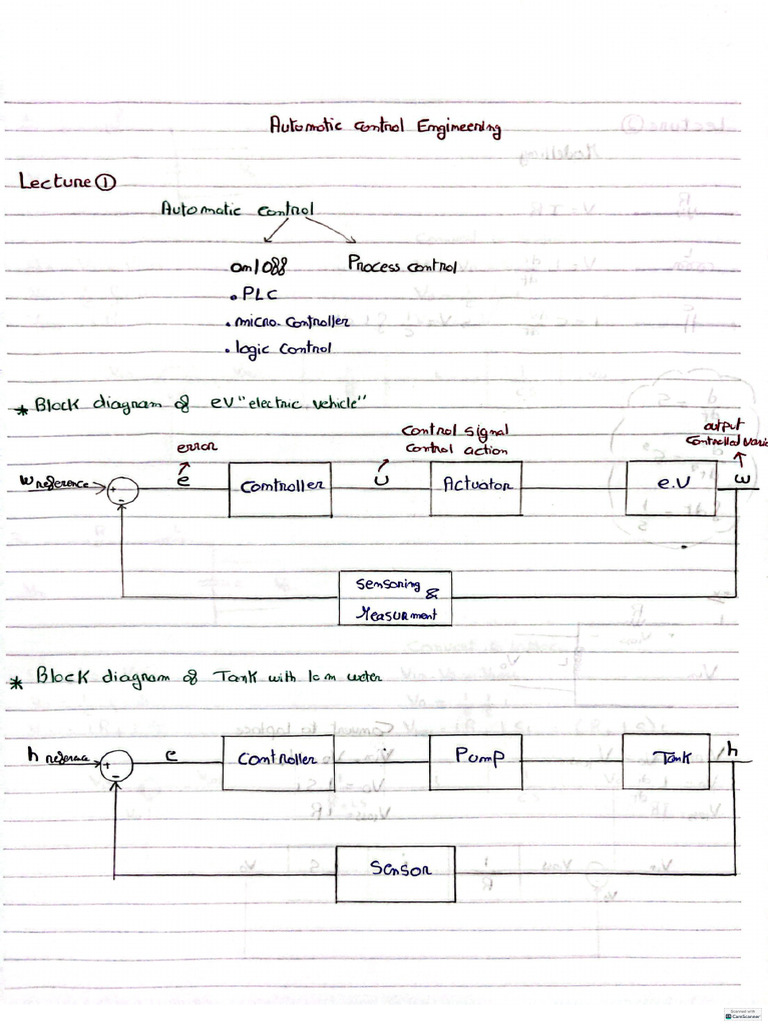 Automatic Control Engineering
Lecture ①
Automatic control
on/off Process control
• PLC
• micro-controller
• logic control
* Block diagram of eV "electric vehicle"
error
control signal
control action
output
Controlled varia
w reference + - e Controller U Actuator e.V w
Sensoring &
Measurment
* Block diagram of Tank with 10m water
h reference + - e Controller Pump Tank h
Sensor
Scanned with
CamScanner